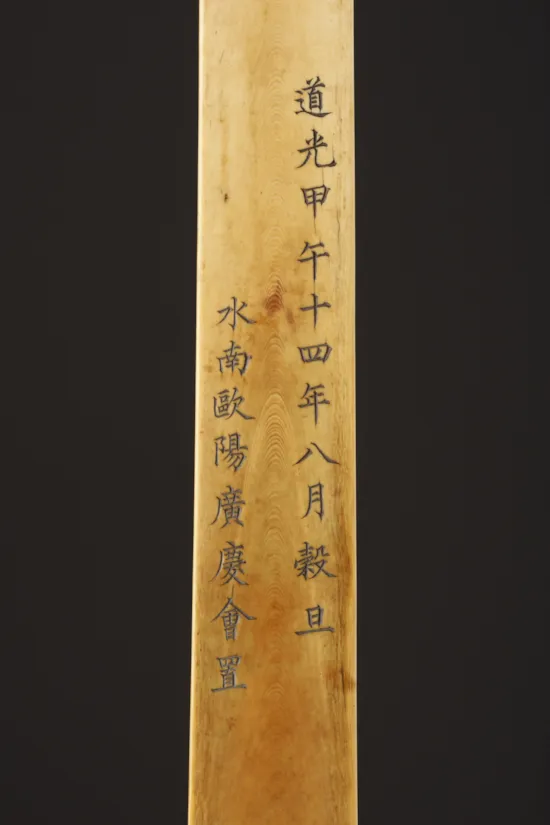 道光甲午十四年八月穀旦
水南歐陽廣慶會置